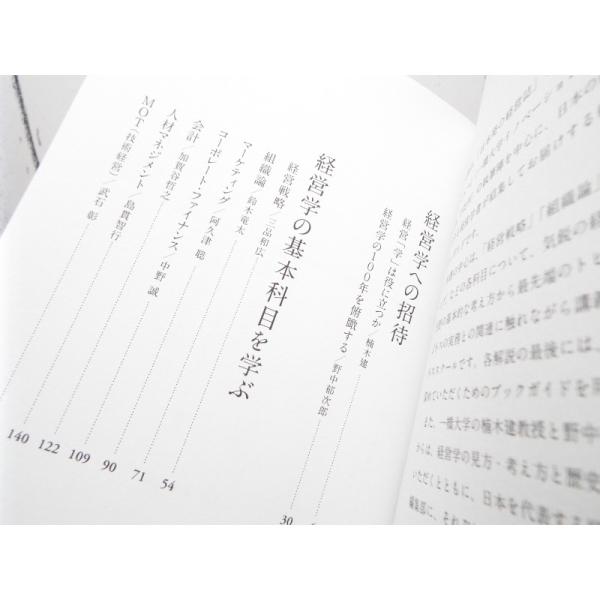 の経営誌」
日本の
してお届けする
「経営戦略」「組織論」
などの各科目について、気鋭の経
の基本的な考え方から最先端のトピ
スの実務との関連に触れながら講義
スクールです。各解説の最後には、
めていただくためのブックガイドを
また、一橋大学の楠木建教授と野中
からは、経営学の見方・考え方と歴史
いただくとともに、日本を代表する
編集部に、それ
経営学への招待
経営「学」は役に立つか/楠木建
経営学の100年を俯瞰する/野中郁次郎 30
経営学の基本科目を学ぶ
経営戦略/三品和広 54
組織論/鈴木竜太 71
マーケティング/阿久津 聡 90
コーポレート・ファイナンス/中野 誠 109
会計/加賀谷哲之 122
人材マネジメント/島貫智行 140
MOT(技術経営)/武石 彰